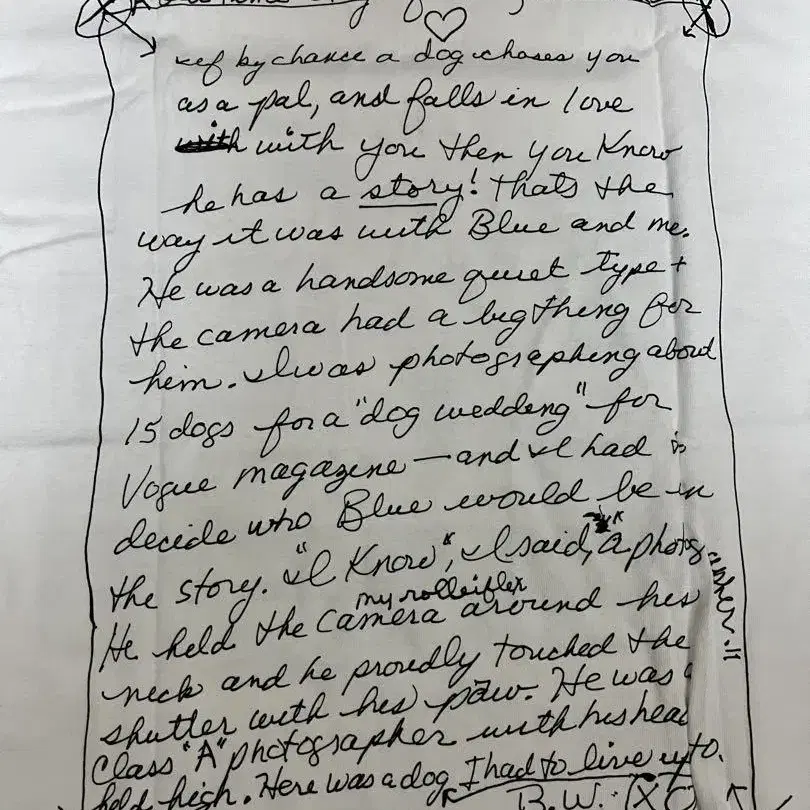 if by chance a dog choses you
as a pal, and falls in love
with with you then you Know
he has a story! Thats the
way it was with Blue and me.
He was a handsome quiet type +
the camera had a big thing for
him. I was photographing about
15 dogs for a "dog wedding" for
Vogue magazine — and I had to
decide who Blue would be in
the story. "I Know", I said, "a photographer."
my rolleiflex
He held the camera around his
neck and he proudly touched the
shutter with his paw. He was a
Class "A" photographer with his head
held high. Here was a dog I had to live up to.
B.W. XO